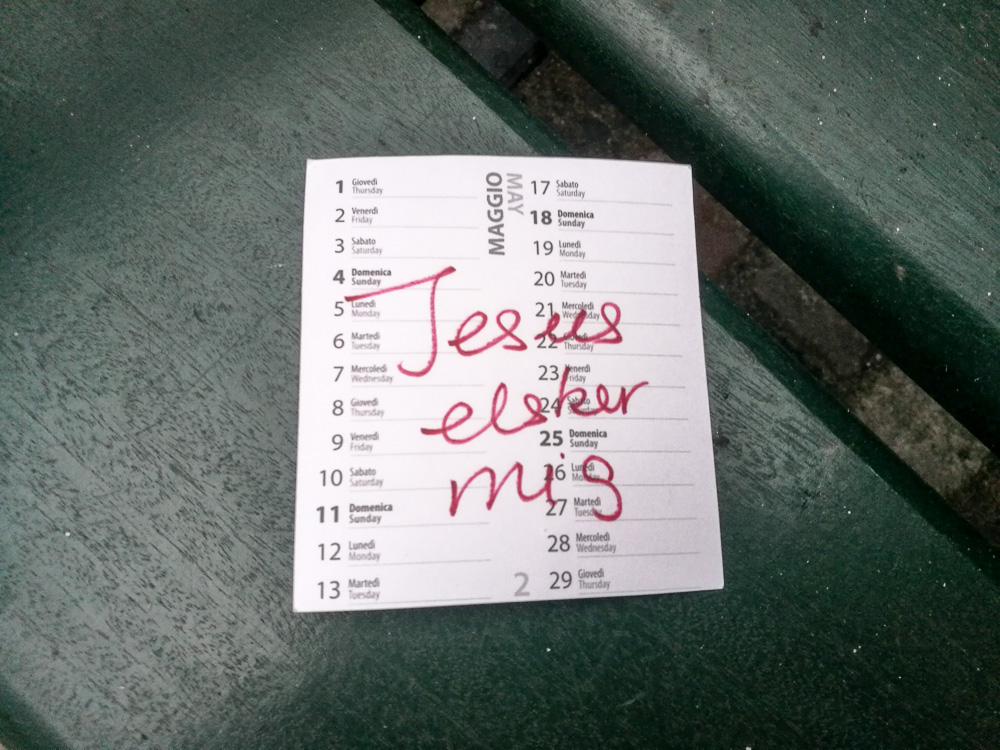 1 Giovedì
Thursday
2 Venerdì
Friday
3 Sabato
Saturday
4 Domenica
Sunday
5 Lunedì
Monday
6 Martedì
Tuesday
7 Mercoledì
Wednesday
8 Giovedì
Thursday
9 Venerdì
Friday
10 Sabato
Saturday
11 Domenica
Sunday
12 Lunedì
Monday
13 Martedì
Tuesday
MAGGIO
MAY
17 Sabato
Saturday
18 Domenica
Sunday
19 Lunedì
Monday
20 Martedì
Tuesday
21 Mercoledì
Wednesday
22 Giovedì
Thursday
23 Venerdì
Friday
24 Sabato
Saturday
25 Domenica
Sunday
26 Lunedì
Monday
27 Martedì
Tuesday
28 Mercoledì
Wednesday
29 Giovedì
Thursday
2
Jesus
elsker
mig